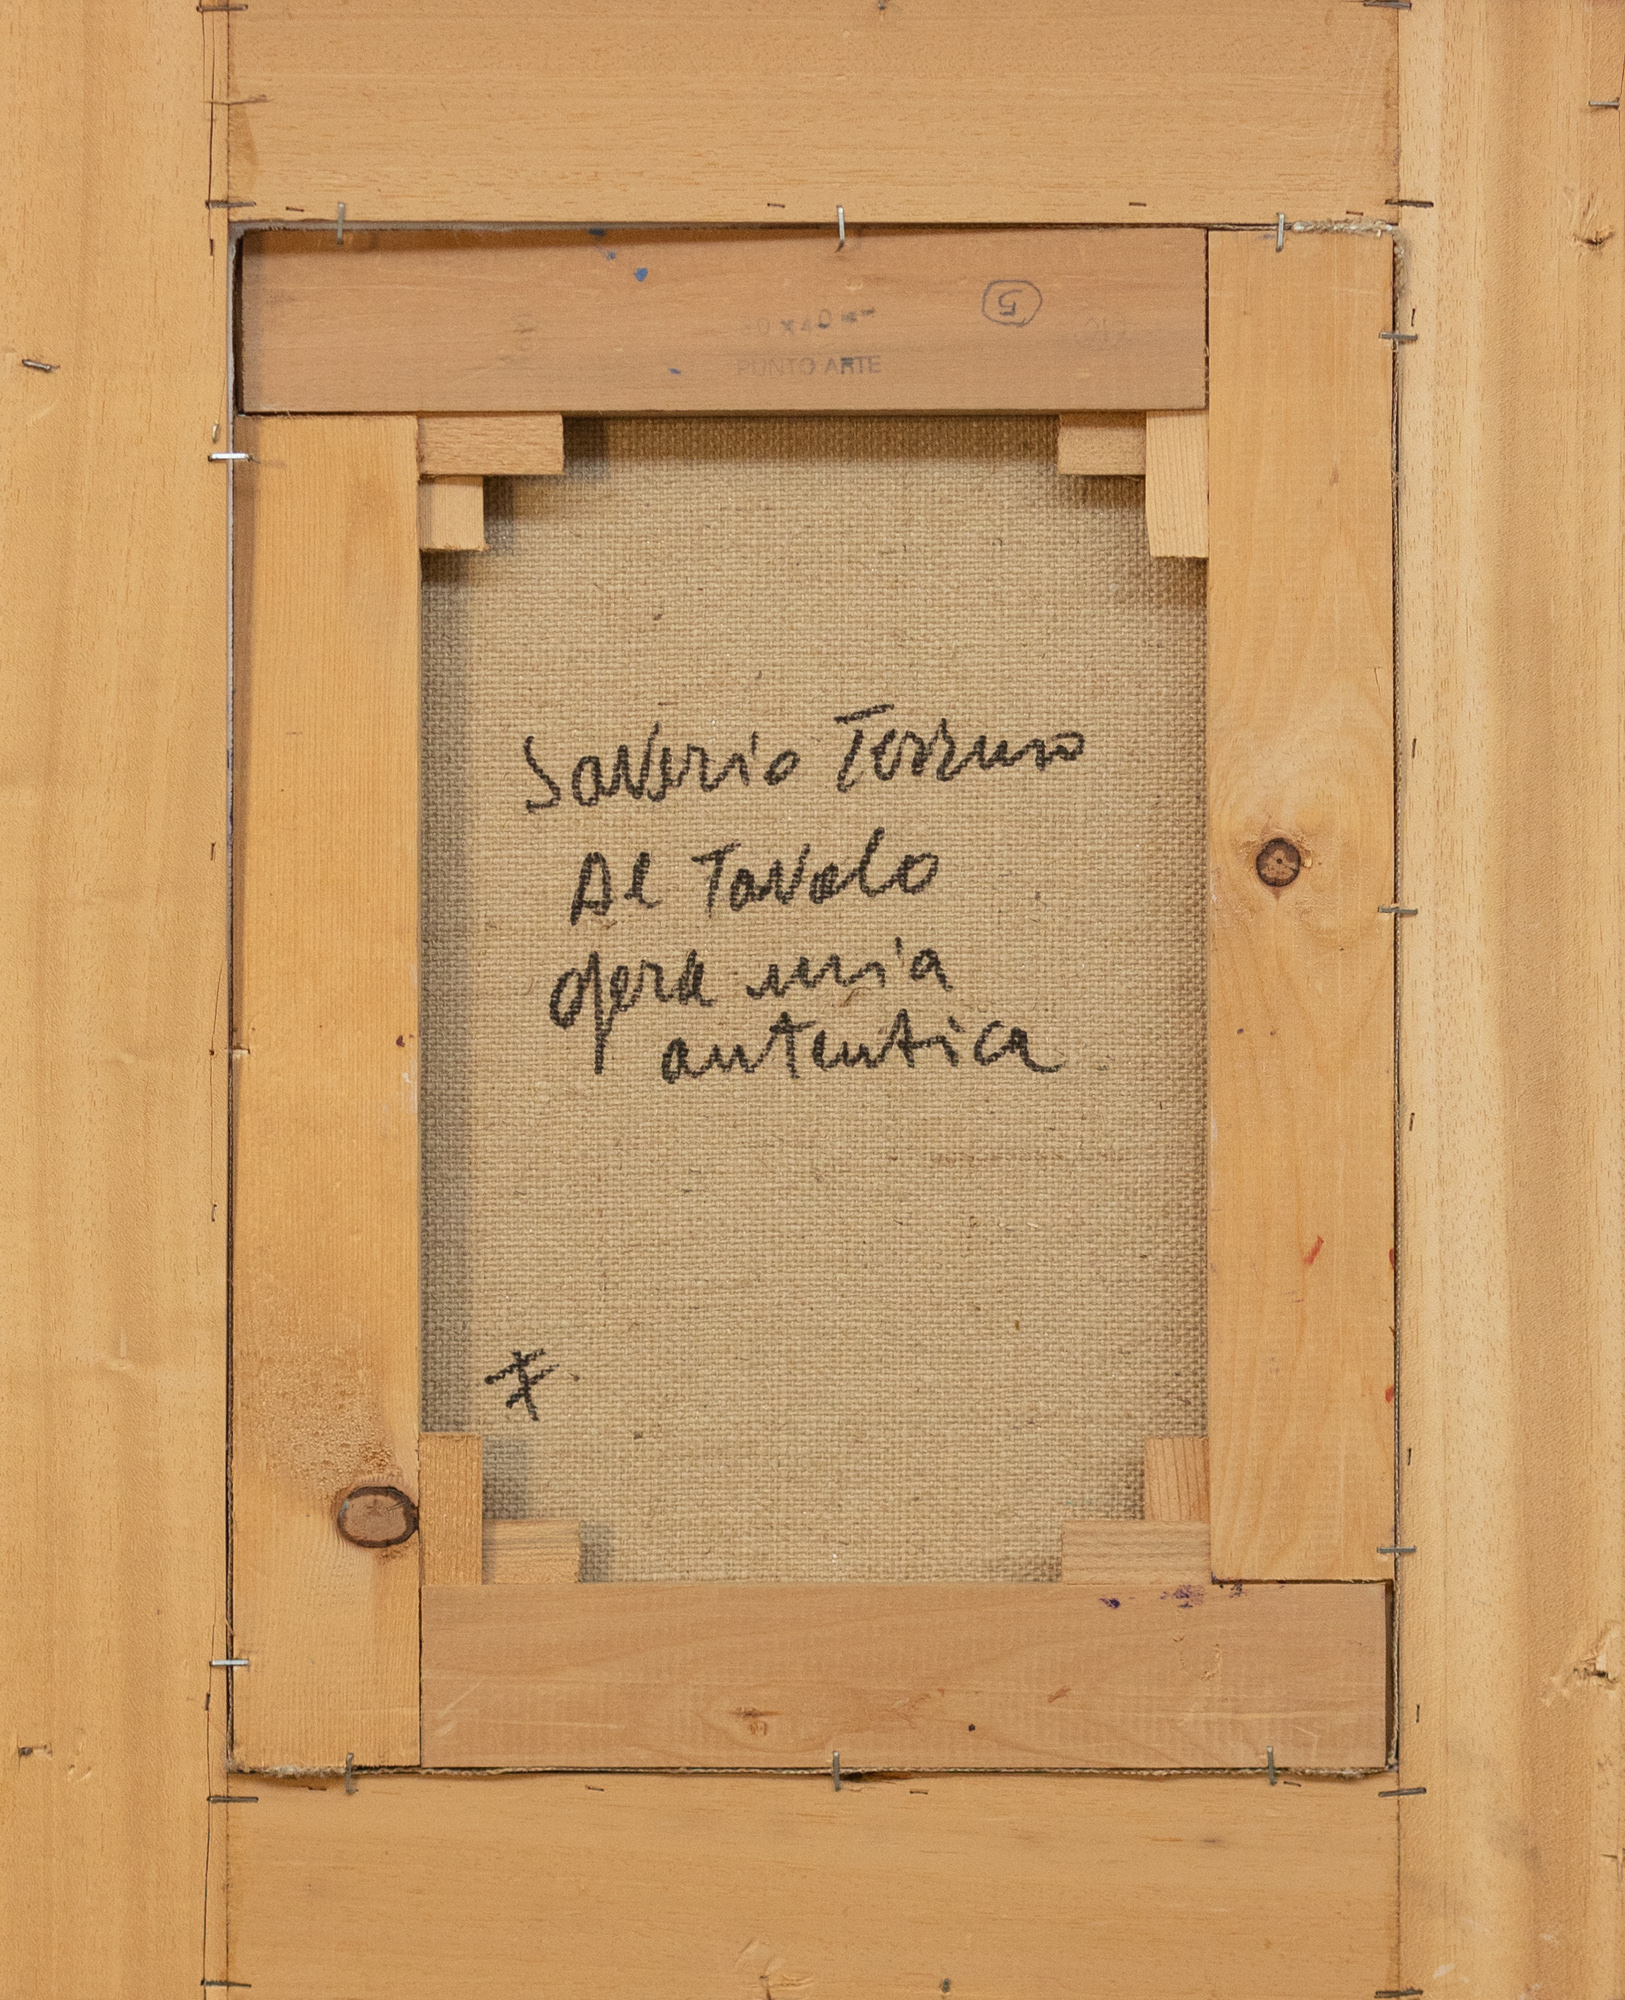 5
PUNTO ARTE
Saverio Terruso
Al Tavolo
opera mia
autentica